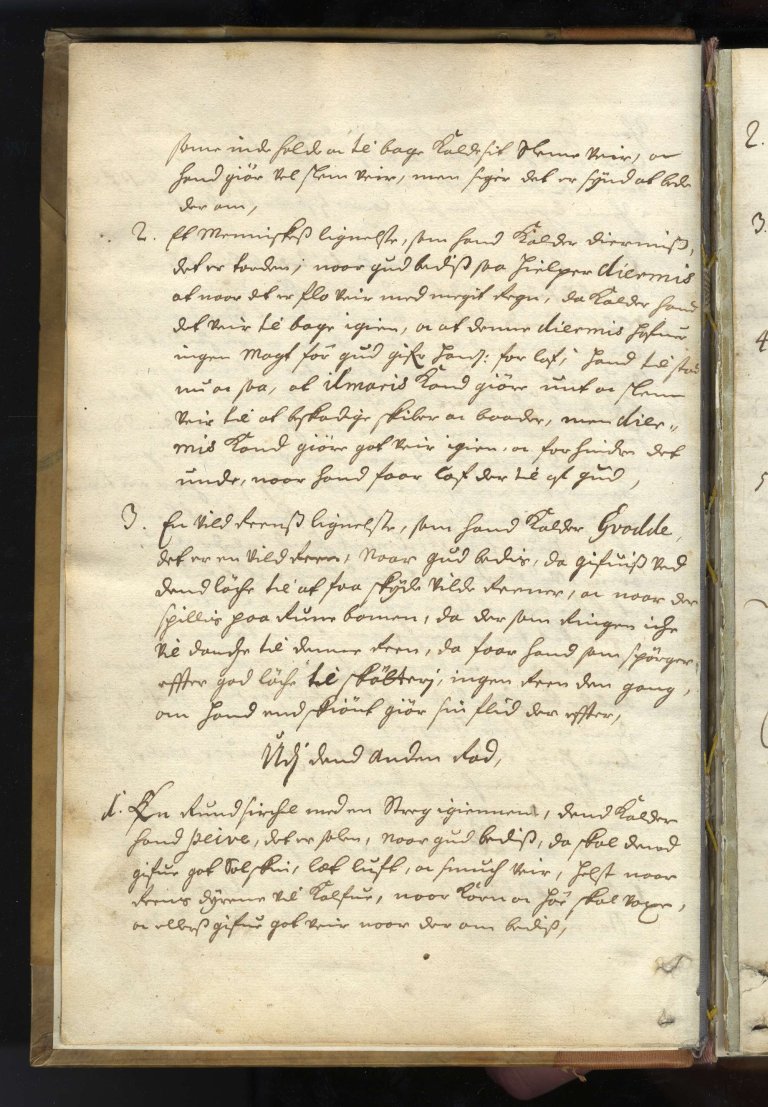 some inde holde oc til bage Kalde sit slemme veir, oc
hand giör vel slem veir, men siger det er synd at bede
der om,
2. Et Menniskes lignelse, som hand Kalder diermis,
det er torden, naar gud bedis saa hielper diermis
at naar det er flo veir med megit Regn, da Kalder hand
det veir til bage igien, oc at denne diermis hafuer
ingen Magt för gud gifr hans: for lof, hand til stod
nu oc saa, at ilmaris Kand giöre unt oc slem
veir til at beskadige skiber oc baader, men dier„
mis Kand giöre got veir igien, oc forhindre det
unde, naar hand faar lof der til af gud,
3. En vild Reens lignelse, som hand Kalder Gvodde,
det er en vild Reen, Naar gud bedis, da gifuis ved
dend löche til at faa skyde vilde Reener, oc naar der
spillis paa Rune bomen, da der som Ringen iche
vil dandse til denne Reen, da faar hand som spörger
effter god löche til skötterj, ingen Reen den gang,
om hand end skiönt giör sin flid der effter,
Udj dend anden Rad,
1. En Rund sirchel med en Streg igiennem, dend Kalder
hand peive, det er solen, Naar gud bedis, da skal dend
gifue got Solskin, let luft, oc smuch veir, helst naar
Reens dyrene vil Kalfue, naar Korn oc höe skal voxe,
oc ellers gifue got veir naar der om bedis,
2.
3.
4
5